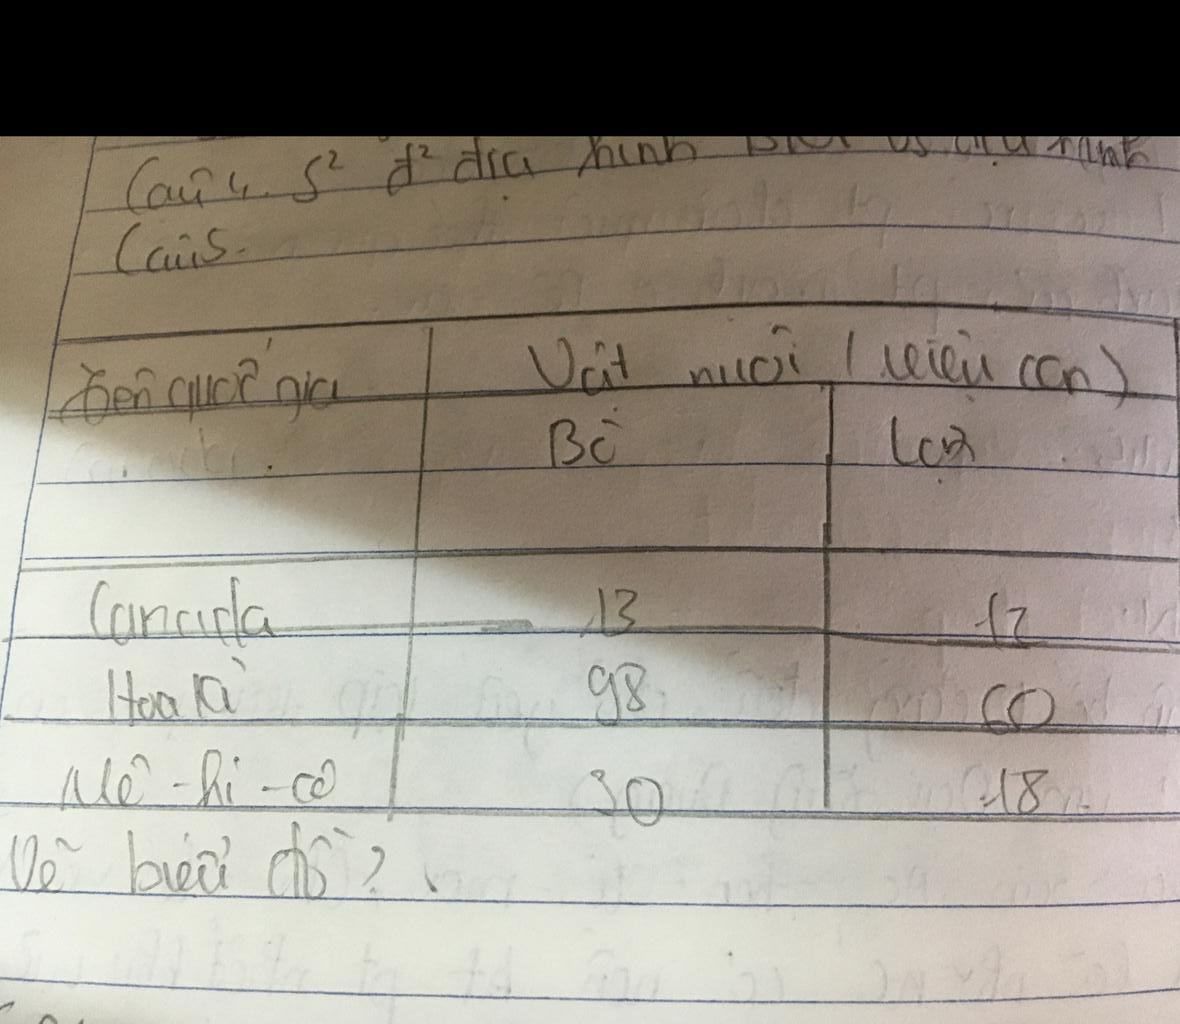 Câu 4. S² đ² địa hình
Câu 5.
Tên quốc gia Vật nuôi (triệu con)
Bò Lợn
Canada 13 12
Hoa Kì 98 60
Mê-hi-cô 30 18
Vẽ biểu đồ?